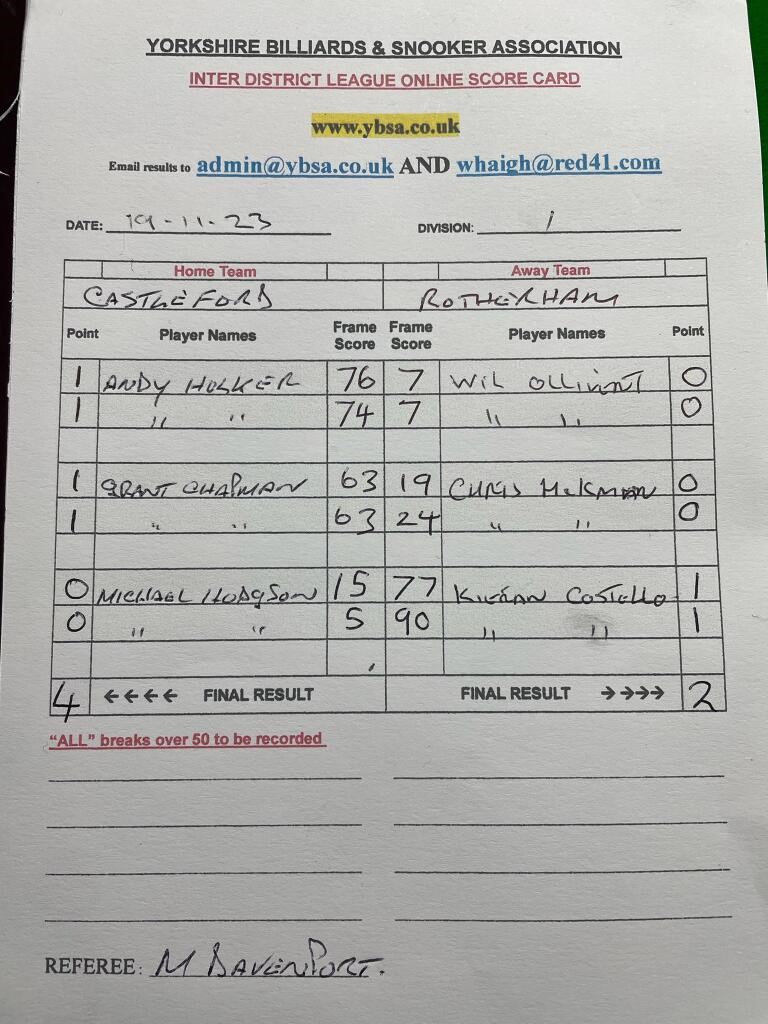 YORKSHIRE BILLIARDS & SNOOKER ASSOCIATION
INTER DISTRICT LEAGUE ONLINE SCORE CARD
www.ybsa.co.uk
Email results to admin@ybsa.co.uk AND whaigh@red41.com
DATE: 19-11-23 DIVISION: 1
Home Team Away Team
CASTLEFORD ROTHERHAM
Point Player Names Frame Score Frame Score Player Names Point
1 ANDY 76 7 WIL OLLIVANT 0
1 " " 74 7 " " 0
1 GRANT CHAPMAN 63 19 CHRIS 0
1 " " 63 24 " " 0
0 MICHAEL HODGSON 15 77 KIERAN COSTELLO 1
0 " " 5 90 " " 1
4 ←←←← FINAL RESULT FINAL RESULT →→→→ 2
"ALL" breaks over 50 to be recorded
REFEREE: M DAVENPORT.